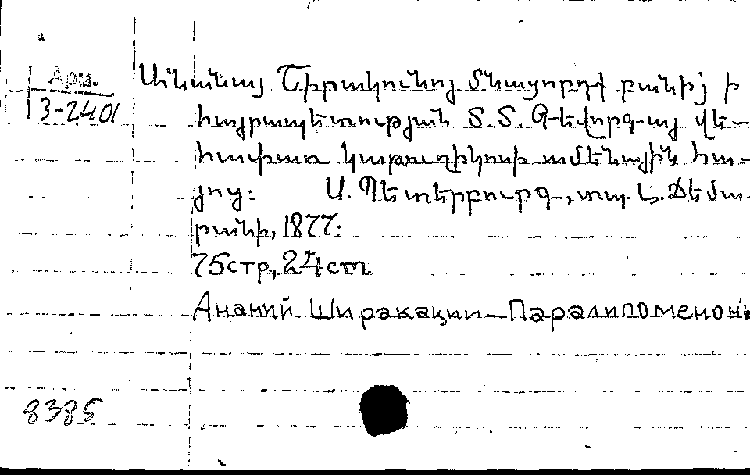 Арм.
3-2401
Անանիայ Շիրակունւոյ մնացորդք բանից ի
հայրապետության Տ. Տ. Գեվորգ-այ վե-
հափառ կաթուղիկոսի ամենային հա-
յոց: Ս. Պետերբուրգ, տպ. Լ. Դեմա-
րանի, 1877:
75стр, 24 cm
Ананий Ширакации - Паралипоменон.
8385